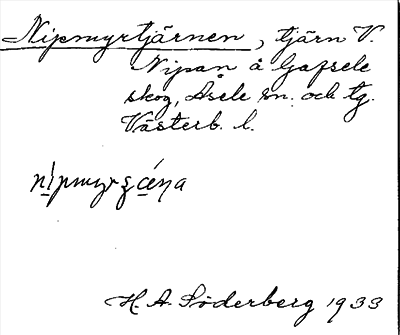 Nipmyrtjärnen, tjärn V.
Nipan å Gafsele
skog, Åsele sn. och tg.
Västerb. l.
H. A. Söderberg 1933